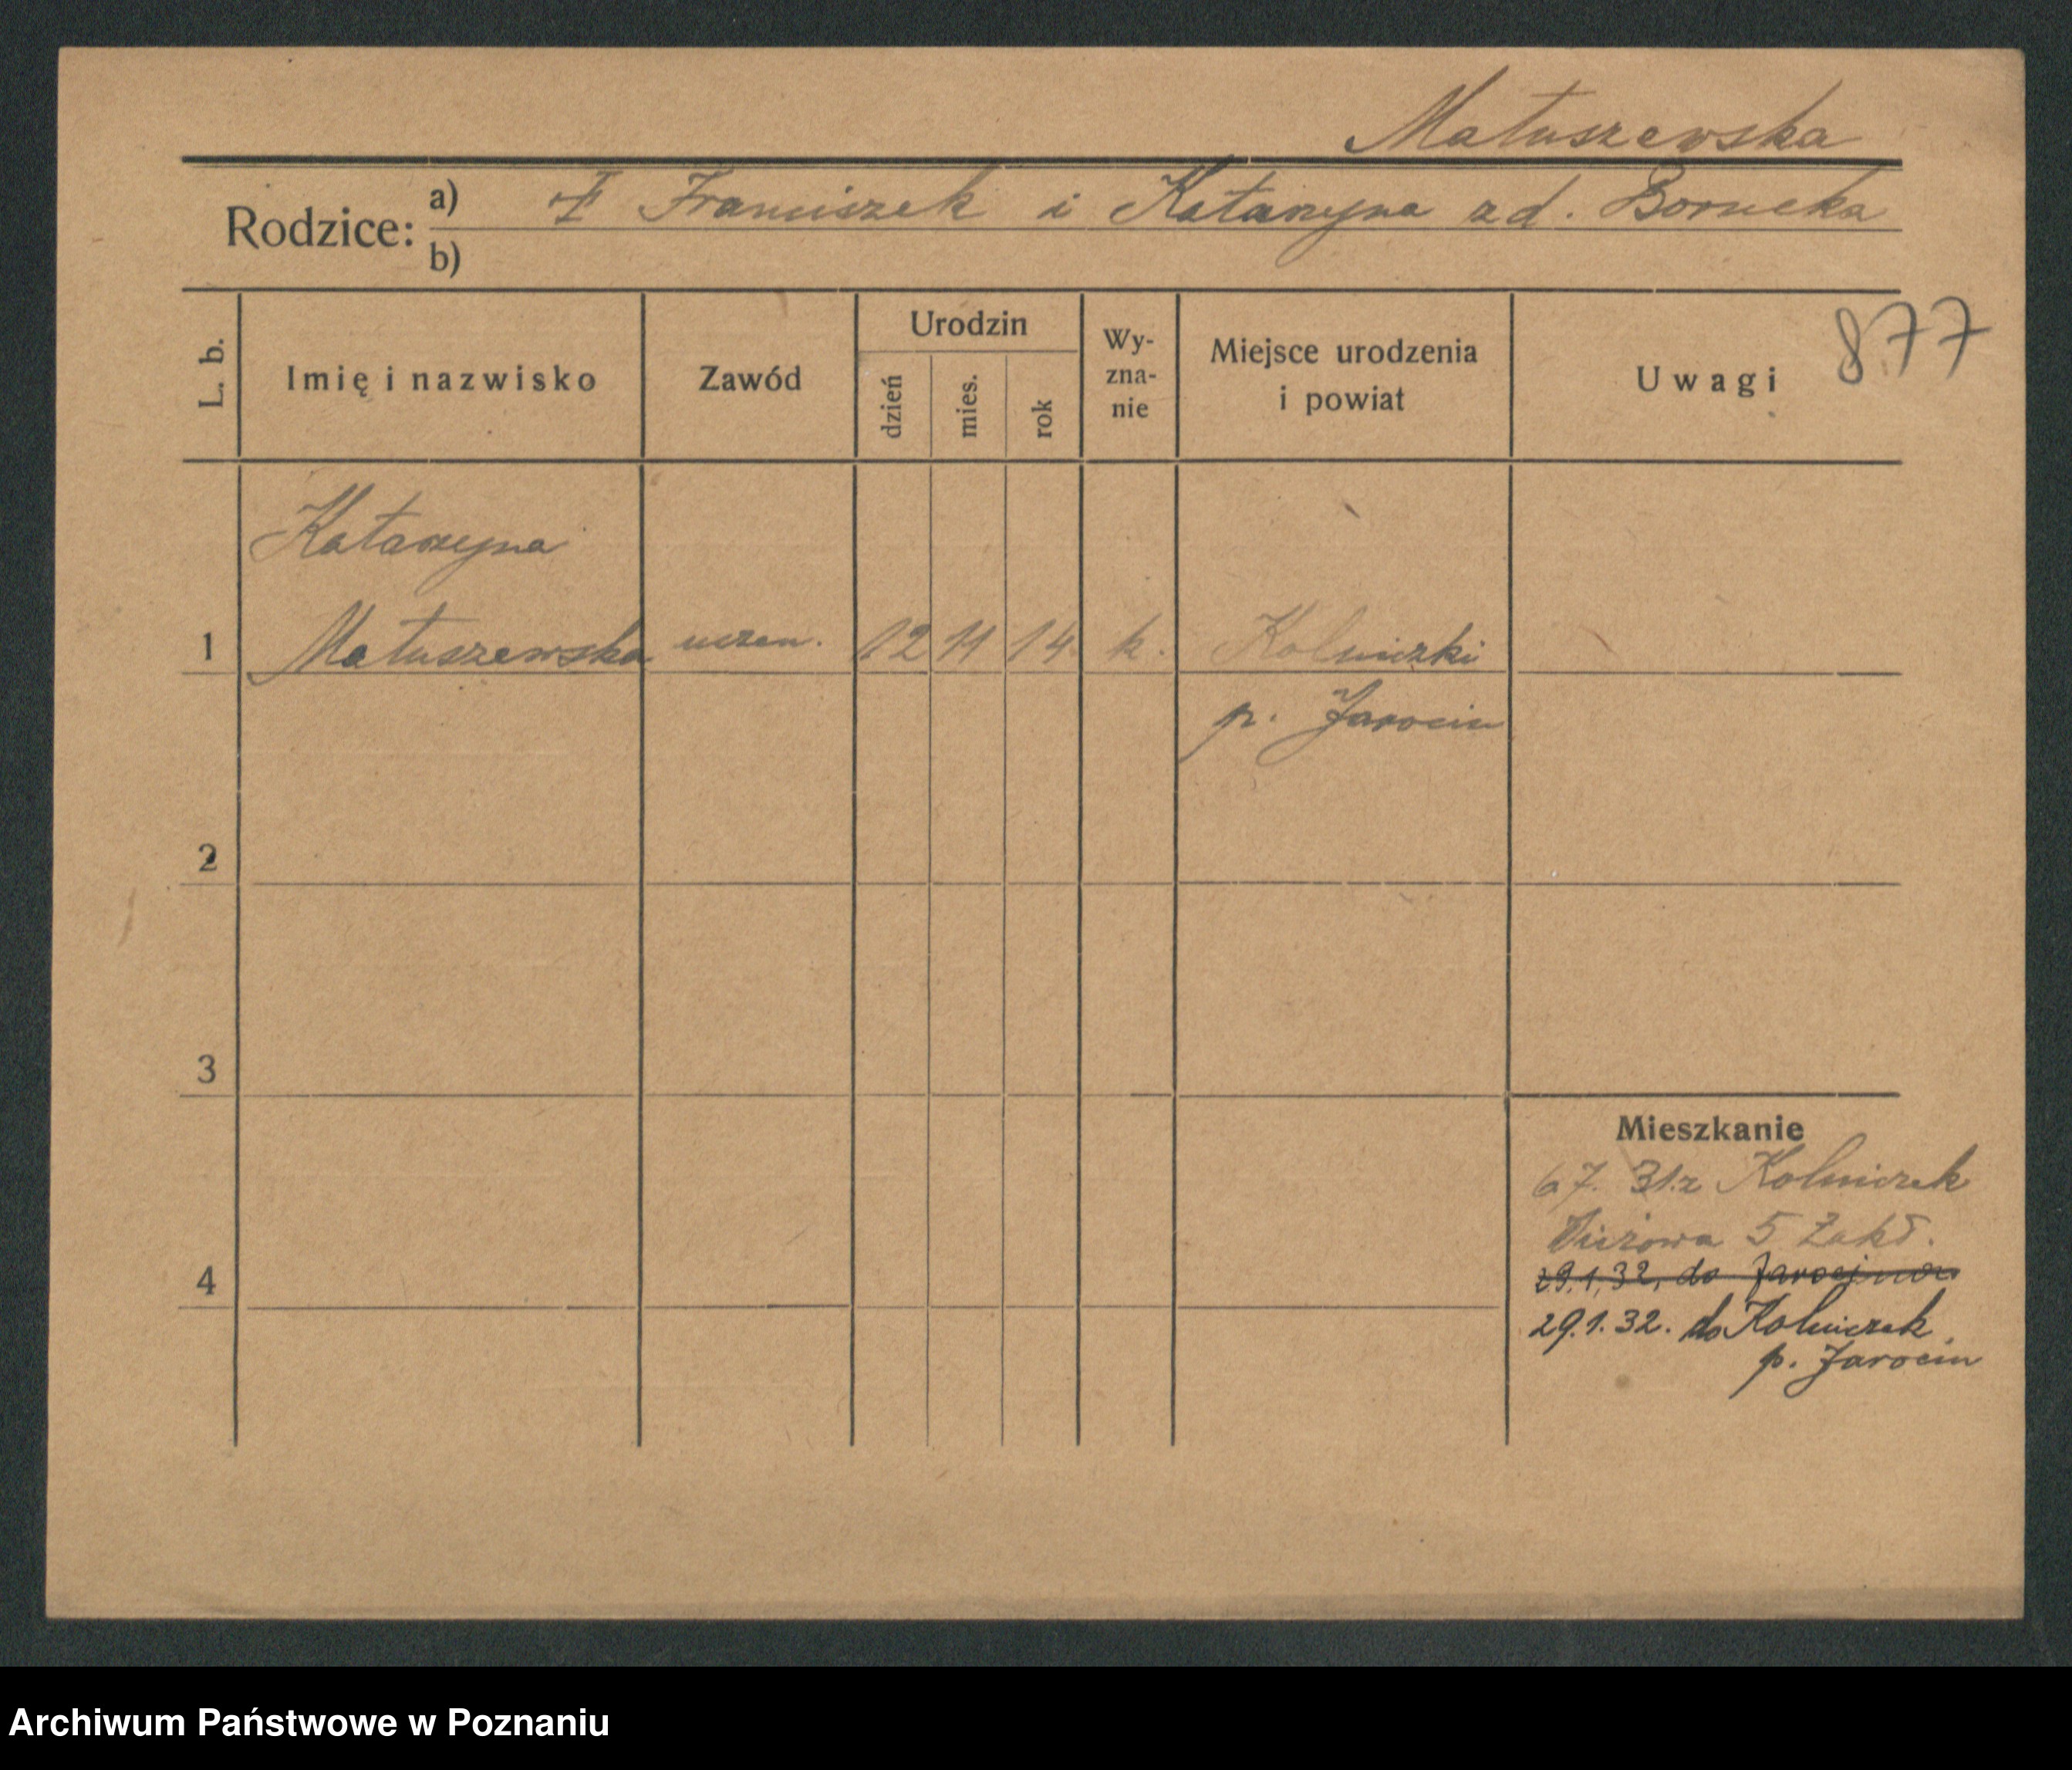 Matuszewska
Rodzice: a) Franciszek i Katarzyna z d. Bornecka
b)
L. b. Imię i nazwisko Zawód Urodzin dzień mies. rok Wy-zna-nie Miejsce urodzenia i powiat Uwagi 877
Katarzyna
1 Matuszewska uczen. 12 11 14 k. Kolniczki
p. Jarocin
2
3
Mieszkanie
67. 31. z Kolniczek
5 Zakł.
4
29.1.32. do Jarocina
29.1.32. do Kolniczek
p. Jarocin
Archiwum Państwowe w Poznaniu